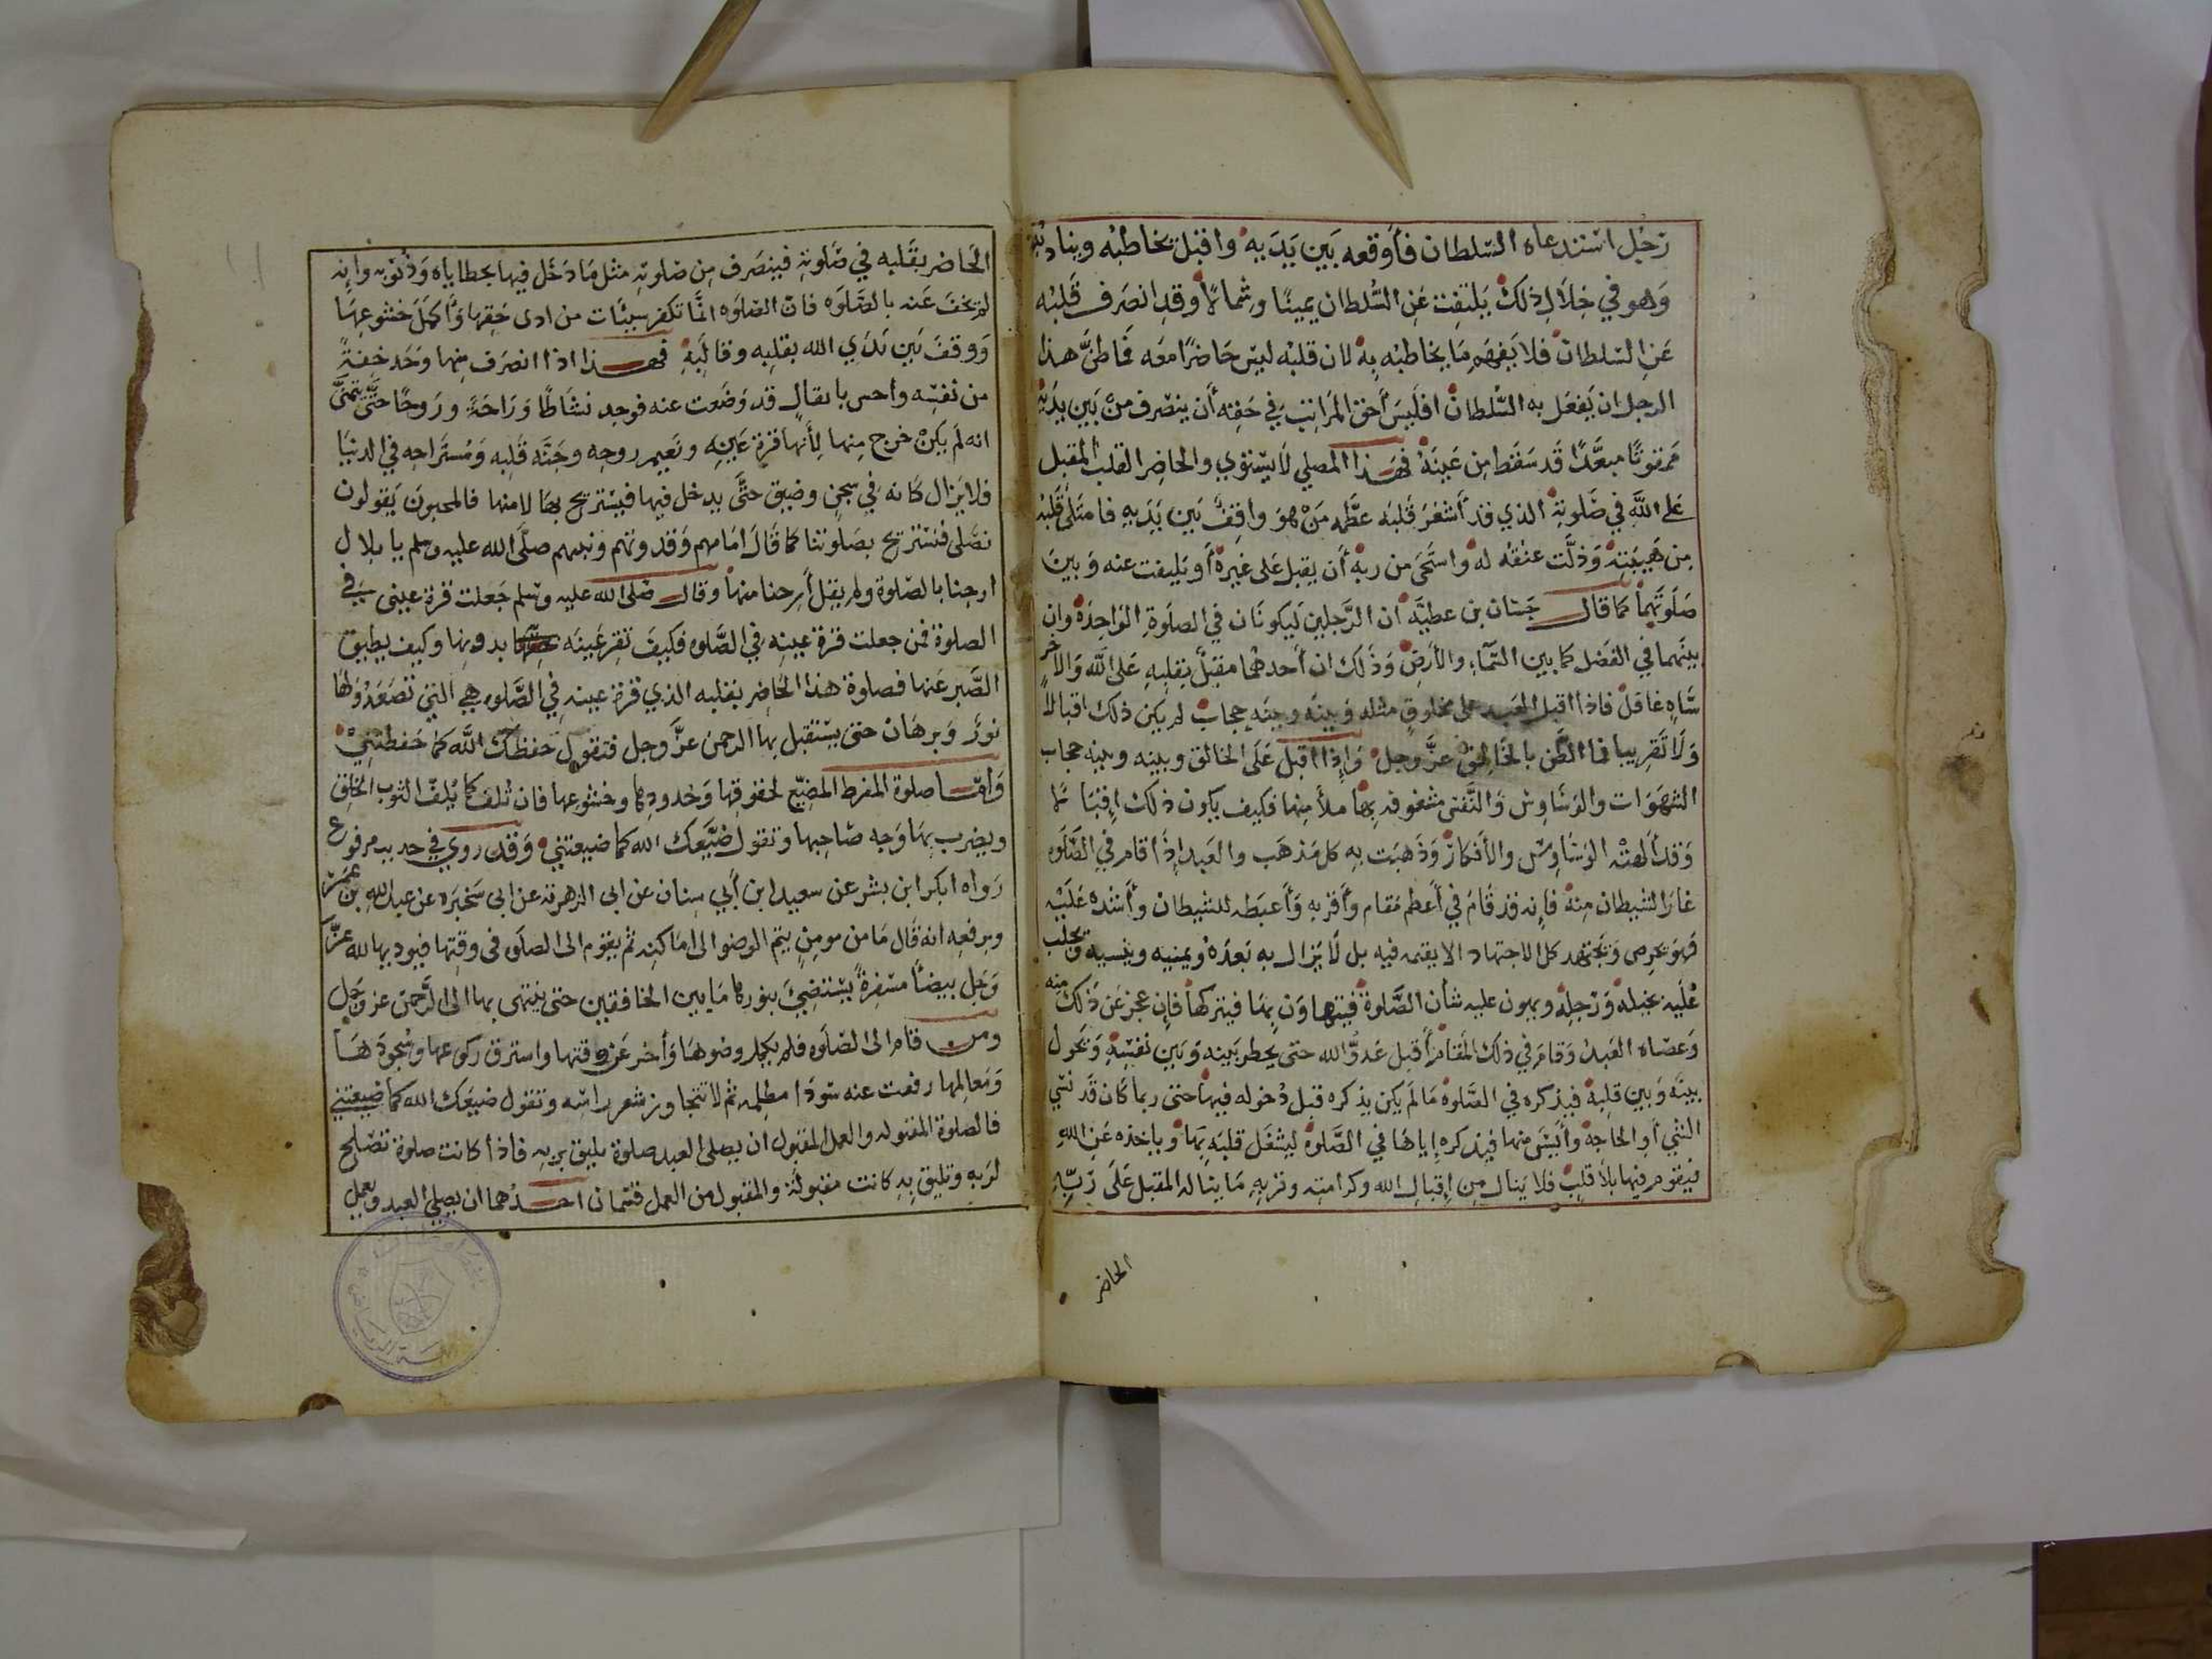 رجل استدعاه السلطان فأوقفه بين يديه واقبل يخاطبه ويناديه
وهو في خلال ذلك يلتفت عن السلطان يمينًا وشمالًا وقد انصرف قلبه
عن السلطان فلا يفهم ما يخاطبه به لان قلبه ليس حاضرًا معه فما ظن هذا
الرجل ان يفعل به السلطان افليس أحق المراتب في حقه أن ينصرف من بين يديه
ممقوتًا مبعدًا قد سقط من عينه فهذا المصلي لا يستوي والحاضر القلب المقبل
على الله في صلوته الذي قد أشعر قلبه عظمه من هو واقف بين يديه فامتلئ قلبه
من هيبته وذلت عنقه له واستحى من ربه أن يقبل على غيره أو يليفت عنه وبين
صلوتهما كما قال حسان بن عطية ان الرجلين ليكونان في الصلوة الواحدة وان
بينهما في الفضل كما بين السماء والأرض وذلك ان أحدهما مقبل بقلبه على الله والاخر
ساه غافل فاذا اقبل العبد على مخلوق مثله وبينه وبينه حجاب لم يكن ذلك اقبالا
ولا تقريبا فما الظن بالخالق عز وجل واذا اقبل على الخالق وبينه وبينه حجاب
الشهوات والوساوس والنفس مشغوفه بها ملأ منها فكيف يكون ذلك إقبالا
وقد ألهته الوساوس والأفكار وذهبت به كل مذهب والعبد إذا قام في الصلوه
غار الشيطان منه فإنه قد قام في أعظم مقام وأقربه وأغيظه للشيطان وأشده عليه
فهو يحرص ويجتهد كل الاجتهاد الا يقيمه فيه بل لا يزال به يعده ويمنيه وينسيه ويجلب
عليه بخيله ورجله ويهون عليه شأن الصلوة فيتهاون بها فيتركها فإن عجز عن ذلك منه
وعصاه العبد وقام في ذلك المقام أقبل عدو الله حتى يخطر بينه وبين نفسه ويحول
بينه وبين قلبه فيذكره في الصلوة ما لم يكن يذكره قبل دخوله فيها حتى ربما كان قد نسي
الشي أو الحاجه وأيس منها فيذكره إياها في الصلوة ليشغل قلبه بها وياخذه عن الله
فيقوم فيها بلا قلب فلا ينال من إقبال الله وكرامته وقربه ما يناله المقبل على ربه
الحاضر
الحاضر بقلبه في صلوته فينصرف من صلوته مثل ما دخل فيها بخطاياه وذنوبه وانه
لم تخف عنه بالصلوه فان الصلوه انما تكفر سيئات من ادى حقها واكمل خشوعها
ووقف بين يدي الله بقلبه وقالبه فهذا اذا انصرف منها وجد خفة
من نفسه واحس باثقال قد وضعت عنه فوجد نشاطًا وراحة وروحًا حتى يتمنى
انه لم يكن خرج منها لأنها قرة عينه ونعيم روحه وجنه قلبه ومستراحه في الدنيا
فلا يزال كانه في سجن وضيق حتى يدخل فيها فيستريح بها لا منها فالمحبون يقولون
نصلى فنستريح بصلوتنا كما قال امامهم وقدوتهم ونبيهم صلى الله عليه وسلم يا بلال
ارحنا بالصلوة ولم يقل أرحنا منها وقال صلى الله عليه وسلم جعلت قرة عيني في
الصلوة فمن جعلت قرة عينه في الصلوه فكيف تقر عينه بدونها وكيف يطيق
الصبر عنها فصلوة هذا الحاضر بقلبه الذي قرة عينه في الصلوه هي التي تصعد ولها
نور وبرهان حتى يستقبل بها الرحمن عز وجل فتقول حفظك الله كما حفظتني
وأما صلوة المفرط المضيع لحقوقها وحدودها وخشوعها فان تلف كما يلف الثوب الخلق
ويضرب بها وجه صاحبها وتقول ضيعك الله كما ضيعتني وقد روي في حديث مرفوع
رواه ابكر ابن بشر عن سعيد ابن أبي سنان عن ابي الزهرية عن ابي شجرة عن عبد الله بن عمر
ويرفعه انه قال ما من مومن يتم الوضو الى اماكنه ثم يقوم الى الصلوه في وقتها فيوديها لله عز
وجل بيضأ مسفرة يستضيئ بنورها ما بين الخافقين حتى ينتهى بها الى الرحمن عز وجل
ومن قام الى الصلوه فلم يكمل وضوها وأخر عن وقتها واسترق ركوعها وسجودها
ومعالمها رفعت عنه سودا مظلمه ثم لا تتجاوز شعر راسه وتقول ضيعك الله كما ضيعتني
فالصلوة المقبوله والعمل المقبول ان يصلى العبد صلوة يليق بربه فاذا كانت صلوة تصلح
لربه وتليق به كانت مقبولة والمقبول من العمل قسمان احدهما ان يصلي العبد ويعمل